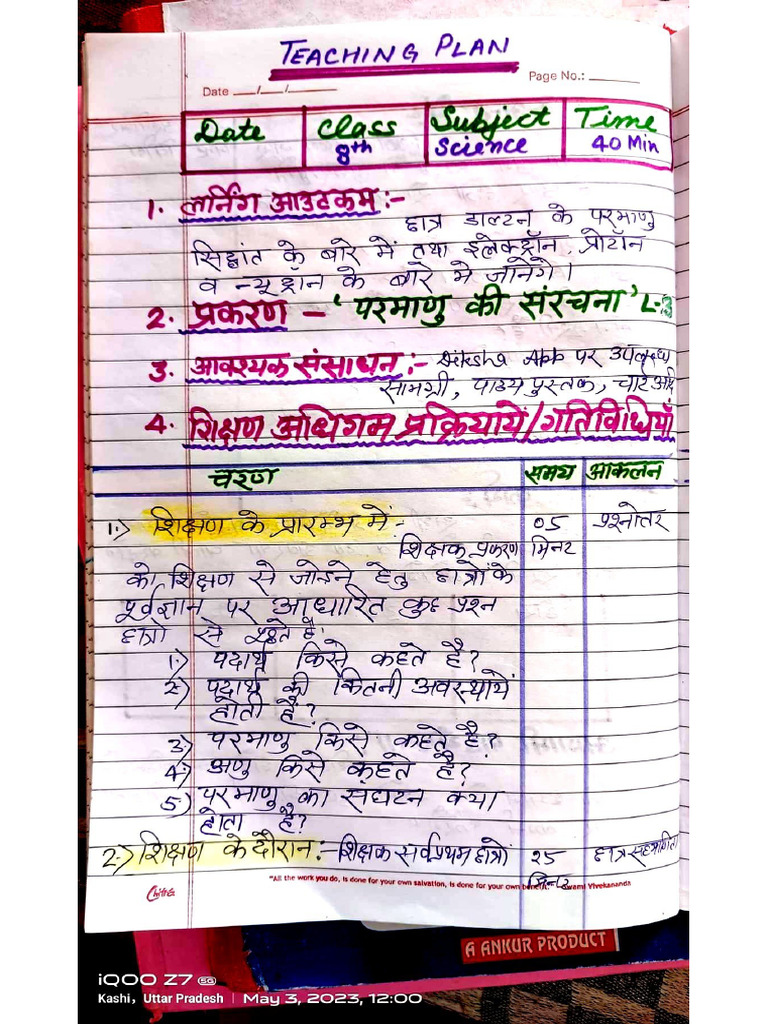 TEACHING PLAN
Date __/__/____ Page No.: ______
Date Class Subject Time
8th Science 40 Min
1. लर्निंग आउटकम :-
छात्र डाल्टन के परमाणु
सिद्धांत के बारे में तथा इलेक्ट्रॉन, प्रोटॉन
व न्यूट्रॉन के बारे में जानेंगे।
2. प्रकरण - 'परमाणु की संरचना' L-3
3. आवश्यक संसाधन :- Diksha App पर उपलब्ध
सामग्री, पाठ्य पुस्तक, चार्ट आदि
4. शिक्षण अधिगम प्रक्रियायें/गतिविधियाँ
चरण समय आकलन
1.) शिक्षण के प्रारम्भ में :- 05 प्रश्नोतर
शिक्षक प्रकरण मिनट
को शिक्षण से जोडने हेतु छात्रों के
पूर्वज्ञान पर आधारित कुछ प्रश्न
छात्रों से पूछते हैं:
1.) पदार्थ किसे कहते है?
2.) पदार्थ की कितनी अवस्थायें
होती हैं?
3.) परमाणु किसे कहते है?
4.) अणु किसे कहते है?
5.) परमाणु का संघटन क्या
होता है?
2.) शिक्षण के दौरान :- शिक्षक सर्वप्रथम छात्रों 25 छात्र सहभागिता
मिनट
"All the work you do, is done for your own salvation, is done for your own benefit." - Swami Vivekananda
Chitra
A ANKUR PRODUCT
iQOO Z7 5G
Kashi, Uttar Pradesh | May 3, 2023, 12:00